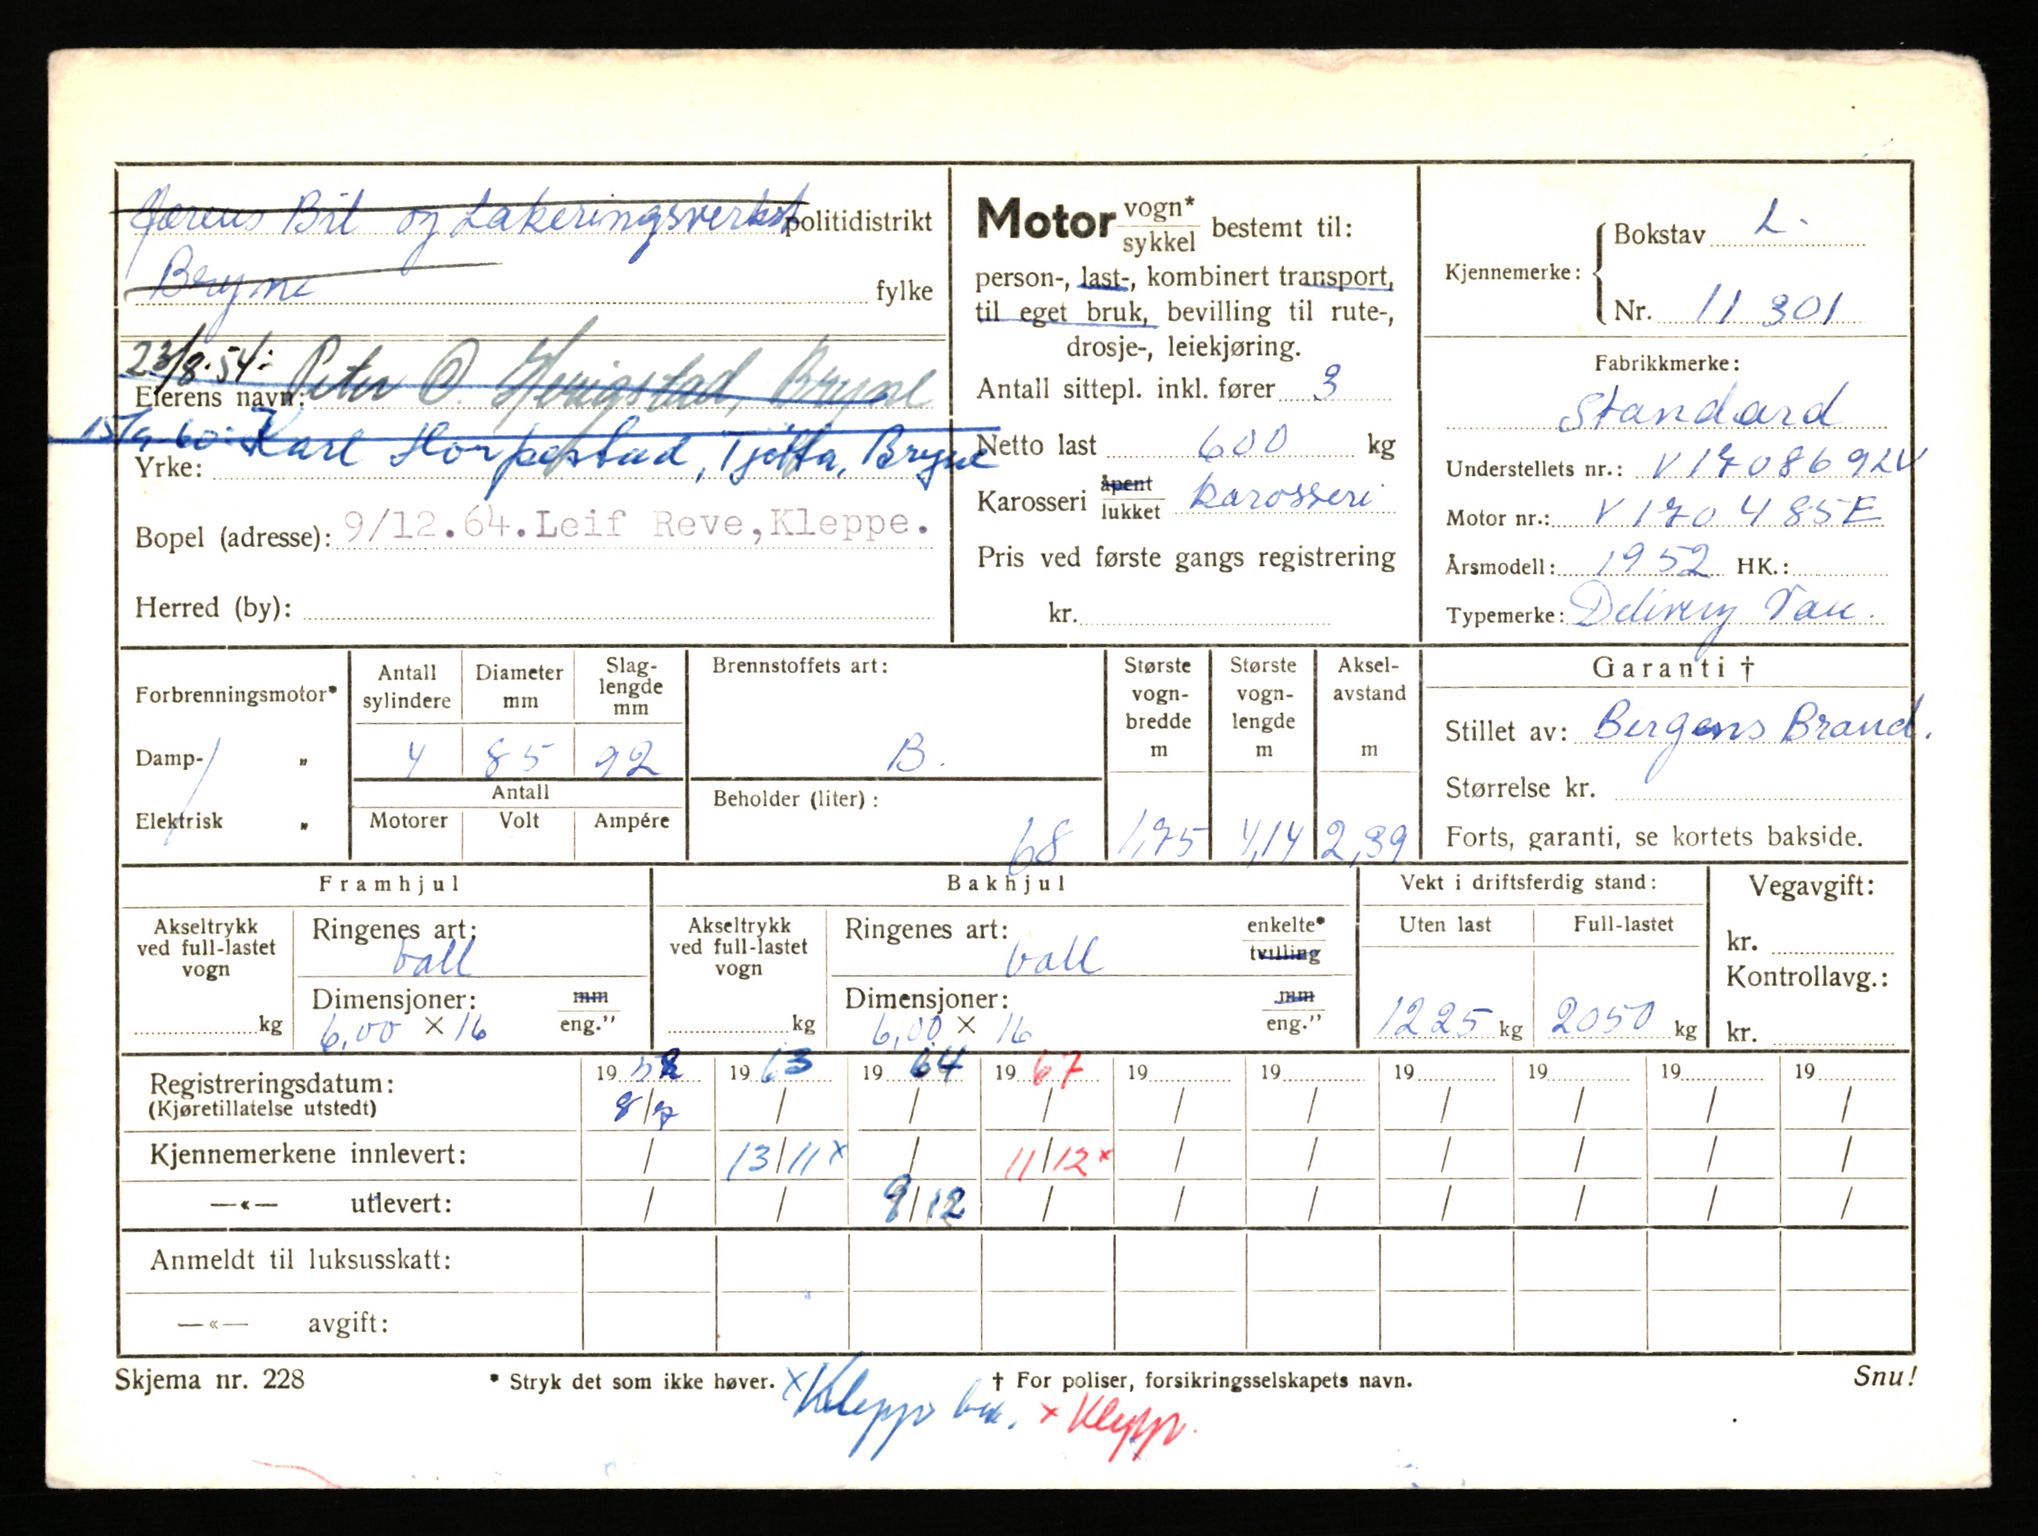 Jærens Bil og Lakeringsverkst politidistrikt
Bryne fylke
23/8.54: Peter O. Herigstad, Bryne
Eierens navn:
15/9 60: Karl Horpestad, Tjøtta, Bryne
Yrke:
Bopel (adresse): 9/12.64.Leif Reve,Kleppe.
Herred (by):
Motor vogn* sykkel bestemt til:
person-, last-, kombinert transport,
til eget bruk, bevilling til rute-,
drosje-, leiekjøring.
Antall sittepl. inkl. fører 3
Netto last 600 kg
Karosseri åpent lukket karosseri
Pris ved første gangs registrering
kr.
Kjennemerke: Bokstav L.
Nr. 11301
Fabrikkmerke:
Standard
Understellets nr.: V170869LV
Motor nr.: V170485E
Årsmodell: 1952 HK.:
Typemerke: Delivery Van.
Forbrenningsmotor*
Damp- „
Elektrisk „
Antall sylindere Diameter mm Slag-lengde mm
4 85 92
Antall
Motorer Volt Ampére
Brennstoffets art:
B.
Beholder (liter):
68
Største vogn-bredde m Største vogn-lengde m Aksel-avstand m
1,75 4,14 2,39
Garanti †
Stillet av: Bergens Brand.
Størrelse kr.
Forts, garanti, se kortets bakside.
Framhjul
Akseltrykk ved full-lastet vogn
kg
Ringenes art:
ball
Dimensjoner: mm
6,00 × 16 eng.”
Bakhjul
Akseltrykk ved full-lastet vogn
kg
Ringenes art: enkelte*
ball tvilling
Dimensjoner: mm
6,00 × 16 eng.”
Vekt i driftsferdig stand:
Uten last Full-lastet
1225 kg 2050 kg
Vegavgift:
kr.
Kontrollavg.:
kr.
Registreringsdatum: 19 52 19 63 19 64 19 67 19 19 19 19 19 19
(Kjøretillatelse utstedt) 8/7 / / / / / / / / /
Kjennemerkene innlevert: / 13/11 x / 11/12 x / / / / / /
—«— utlevert: / / 9/12 / / / / / / /
Anmeldt til luksusskatt:
—«— avgift:
Skjema nr. 228 * Stryk det som ikke høver. † For poliser, forsikringsselskapets navn. Snu!
x Klepp x Klepp.